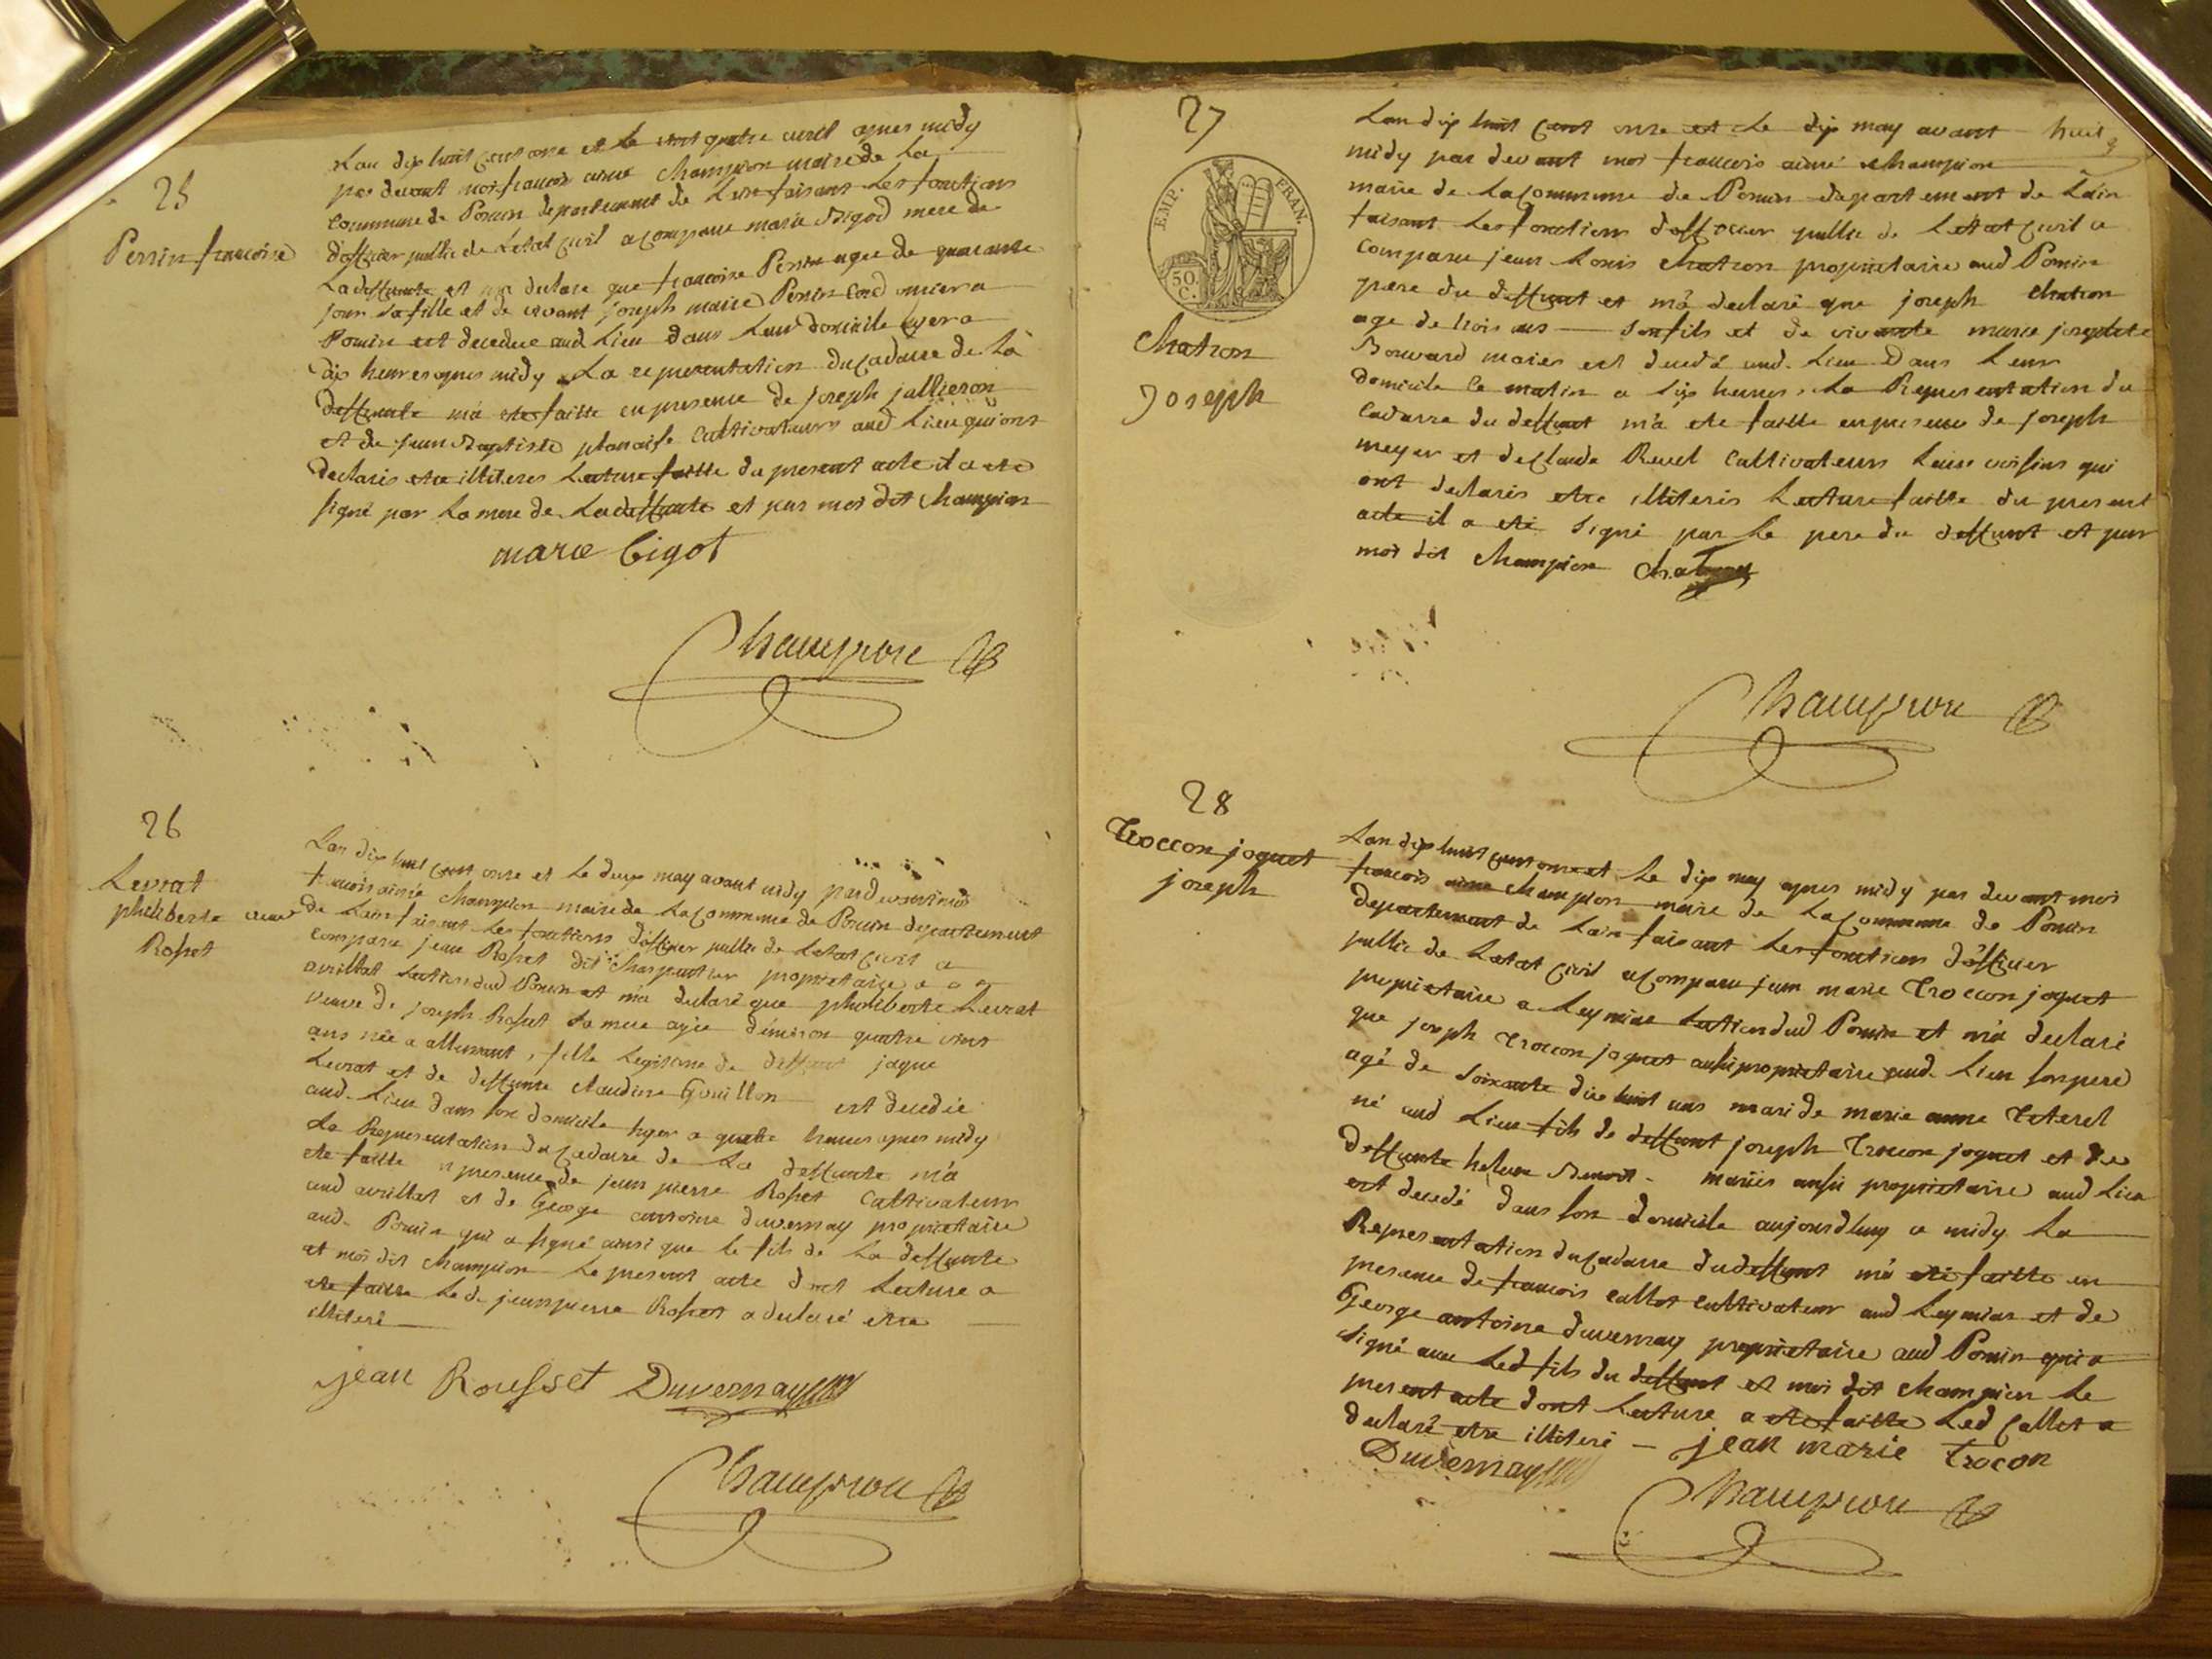 25
Perrin francoise
Lan dix huit cent onze et le vint quatre avril apres midy
par devant moi francois aimé Champion maire de La
Commune de Poncin departement de Lain faisant Les fonctions
dofficier public de Letat civil a comparu marie Bigod mere de
La deffunte et m'a declaré que francoise Perrin agee de quarante
jour sa fille et de vivant joseph marie Perrin cordonnier a
Poncin est decedee aud Lieu dans Leur domicile hyer a
dix heures apres midy La representation du cadavre de La
deffunte m'a ete faitte en presence de joseph jallieron
et de jean Baptiste planaise Cultivateurs aud Lieu qui ont
declarés etre illiteres Lecture faitte du present acte il a ete
signé par La mere de La deffunte et par moi dit Champion
marie bigot
Champion
26
Levrat
philiberte veuve
Rosset
Lan dix huit cent onze et Le deux may avant midy pardevant moi
francois aimé Champion maire de La Commune de Poncin departement
de Lain faisant Les fonctions dofficier public de Letat civil a
comparu jean Rosset dit Charpentier proprietaire a
avrillat section dud Poncin et m'a declaré que philiberte Levrat
veuve de joseph Rosset sa mere agée d'environ quatre vint
ans née a allement, fille Legitime de deffunt jaque
Levrat et de deffunte Claudine Guillon est decedée
aud. Lieu dans son domicile hyer a quatre heures apres midy
La Representation du cadavre de La deffunte m'a
ete faitte en presence de jean pierre Rosset Cultivateur
aud avrillat et de George antoine duvernay proprietaire
aud. Poncin qui a signé ainsi que le fils de La deffunte
et moi dit Champion Le present acte dont Lecture a
ete faitte Led. jean pierre Rosset a declaré etre
illiteré
jean Rousset Duvernay
Champion
27
EMP. FRAN.
50 C.
Chatron
Joseph
Lan dix huit cent onze et Le dix may avant huit
midy par devant moi francois aimé Champion
maire de La Commune de Poncin departement de Lain
faisant Les fonctions dofficier public de Letat civil a
Comparu jean Louis Chatron proprietaire aud Poncin
pere du deffunt et m'a declaré que joseph Chatron
age de trois ans son fils et de vivante marie josephte
Bouvard mariés est decedé aud. Lieu Dans Leur
domicile Ce matin a six heures, La Representation du
Cadavre du deffunt m'a ete faitte en presence de joseph
meyer et de Claude Revel Cultivateurs Leurs voisins qui
ont declarés etre illiterés Lecture faitte du present
acte il a eté signé par Le pere du deffunt et par
moi dit Champion Chatron
Champion
28
Troccon joquet
joseph
Lan dix huit cent onze et Le dix may apres midy par devant moi
francois aimé Champion maire de La Commune de Poncin
departement de Lain faisant Les fonctions d'officier
public de Letat civil a Comparu jean marie Troccon joquet
proprietaire a Leymiat section dud Poncin et m'a declaré
que joseph Troccon joquet aussi proprietaire aud. Lieu son pere
agé de soixante dix huit ans mari de marie anne Teterel
né aud Lieu fils de deffunt joseph Troccon joquet et de
deffunte helene Benoit mariés aussi proprietaire aud Lieu
est decedé dans son domicile aujourdhuy a midy La
Representation du cadavre du deffunt m'a eté faitte en
presence de francois Callet cultivateur aud Leymiat et de
George antoine duvernay proprietaire aud Poncin qui a
signé avec Led fils du deffunt et moi dit Champion Le
present acte dont Lecture a ete faitte Led Callet a
declaré etre illiteré jean marie Trocon
Duvernay
Champion